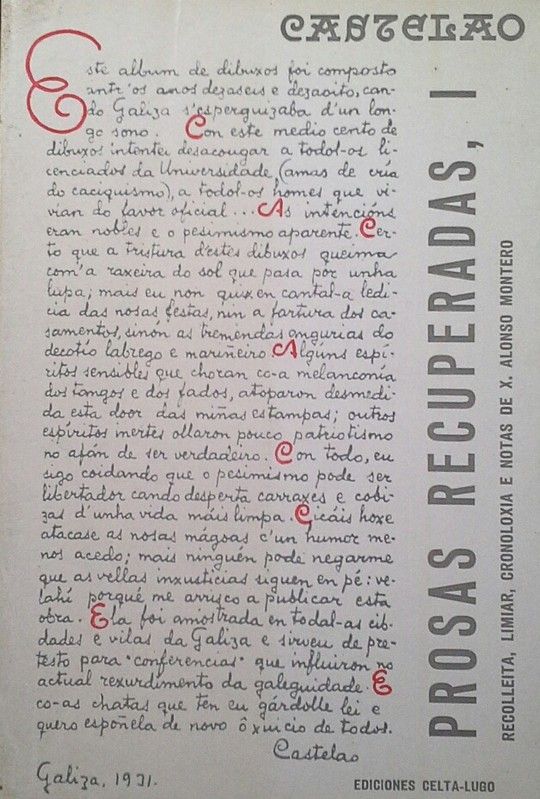 CASTELAO
Este album de dibuxos foi composto
antr'os anos dezaseis e dezaoito, can-
do Galiza s'esperguizaba d'un lon-
go sono. Con este medio cento de
dibuxos intentei desacougar a todol-os li-
cenciados da Universidade, (amas de cría
do caciquismo), a todol-os homes que vi-
vian do favor oficial... As intencións
eran nobles e o pesimismo aparente. Cer-
to que a tristura d'estes dibuxos queima
com'a raxeira do sol que pasa por unha
lupa; mais eu non quixen cantal-a ledi-
cia das nosas festas, nin a fartura dos ca-
samentos, sinón as tremendas angurias do
decotío labrego e mariñeiro. Alguns espí-
ritos sensibles que choran co-a melanconía
dos tangos e dos fados, atoparon desmedi-
da esta door das miñas estampas; outros
espíritos inertes ollaron pouco patriotismo
no afán de ser verdadeiro. Con todo, eu
sigo coidando que o pesimismo pode ser
libertador cando desperta carraxes e cobi-
zas d'unha vida máis limpa. Cicáis hoxe
atacase as nosas mágoas c'un humor me-
nos acedo; mais ninguén pode negarme
que as vellas inxusticias siguen en pé: ve-
lahí porqué me arrisco a publicar esta
obra. Ela foi amostrada en todal-as cib-
dades e vilas da Galiza e sirveu de pre-
testo para "conferencias" que influiron no
actual rexurdimento da galeguidade. E
co-as chatas que ten eu gárdolle lei e
quero espoñela de novo ô xuicio de todos.
Castelao
Galiza, 1931.
PROSAS RECUPERADAS, I
RECOLLEITA, LIMIAR, CRONOLOXIA E NOTAS DE X. ALONSO MONTERO
EDICIONES CELTA-LUGO